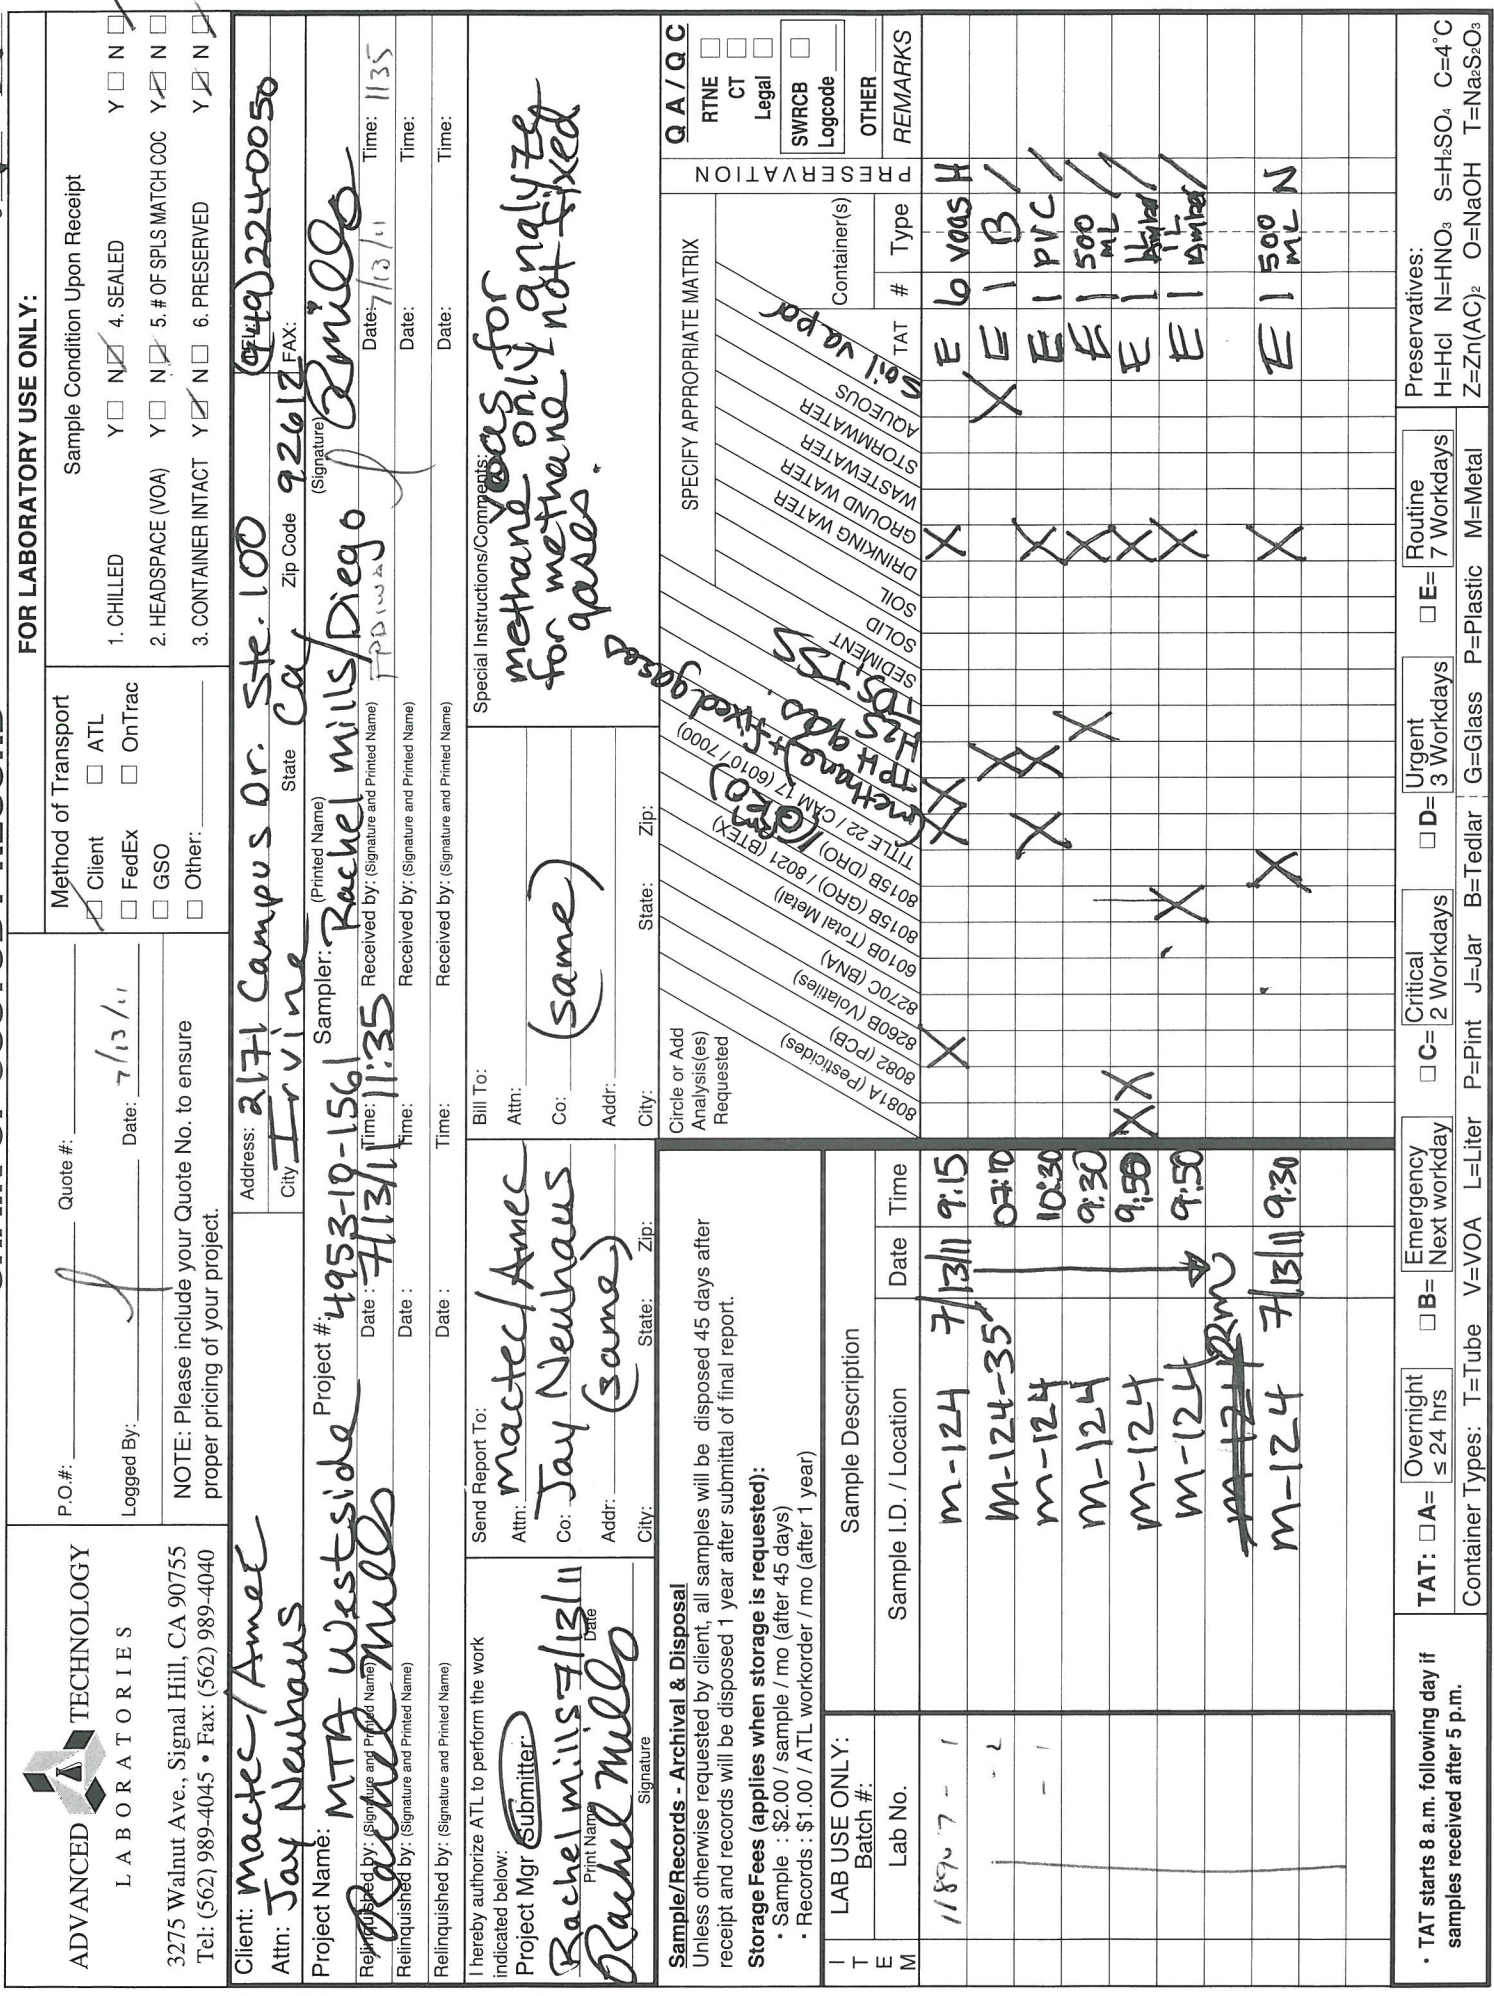 ADVANCED TECHNOLOGY
LABORATORIES
3275 Walnut Ave., Signal Hill, CA 90755
Tel: (562) 989-4045 • Fax: (562) 989-4040
P.O.#: Quote #:
Logged By: Date: 7/13/11
NOTE: Please include your Quote No. to ensure
proper pricing of your project.
FOR LABORATORY USE ONLY:
Method of Transport
Client ATL
FedEx OnTrac
GSO
Other:
Sample Condition Upon Receipt
1. CHILLED Y N 4. SEALED Y N
2. HEADSPACE (VOA) Y N 5. # OF SPLS MATCH COC Y N
3. CONTAINER INTACT Y N 6. PRESERVED Y N
Client: Mactec/Amec
Attn: Jay Neuhaus
Address: 2171 Campus Dr. Ste. 100
City Irvine State Ca Zip Code 92612
TEL: (949) 2240050
FAX:
Project Name: MTA Westside Project #: 4953-10-1561 Sampler: (Printed Name) Rachel Mills/Diego (Signature) RMills
Relinquished by: (Signature and Printed Name) Rachel Mills Date: 7/13/11 Time: 11:35 Received by: (Signature and Printed Name) Date: 7/13/11 Time: 1135
Relinquished by: (Signature and Printed Name) Date: Time: Received by: (Signature and Printed Name) Date: Time:
Relinquished by: (Signature and Printed Name) Date: Time: Received by: (Signature and Printed Name) Date: Time:
I hereby authorize ATL to perform the work
indicated below:
Project Mgr /Submitter:
Rachel Mills 7/13/11
Print Name Date
Rachel Mills
Signature
Send Report To:
Attn: Mactec/Amec
Co: Jay Neuhaus
Addr: (same)
City: State: Zip:
Bill To:
Attn:
Co: (same)
Addr:
City: State: Zip:
Special Instructions/Comments:
Voas for
methane only analyze
for methane not fixed
gases.
Sample/Records - Archival & Disposal
Unless otherwise requested by client, all samples will be disposed 45 days after
receipt and records will be disposed 1 year after submittal of final report.
Storage Fees (applies when storage is requested):
• Sample : $2.00 / sample / mo (after 45 days)
• Records : $1.00 / ATL workorder / mo (after 1 year)
Circle or Add
Analysis(es)
Requested
8081A (Pesticides)
8082 (PCB)
8260B (Volatiles)
8270C (BNA)
6010B (Total Metal)
8015B (GRO) / 8021 (BTEX)
8015B (DRO) / (GRO) RM
TITLE 22 / CAM 17 (6010 / 7000)
(methane) + fixed gases
TPH gas.
H2S
TDS, TSS
SPECIFY APPROPRIATE MATRIX
SEDIMENT
SOLID
SOIL
DRINKING WATER
GROUND WATER
WASTEWATER
STORMWATER
AQUEOUS
Soil vapor
TAT
Container(s)
# Type
PRESERVATION
QA/QC
RTNE
CT
Legal
SWRCB
Logcode
OTHER
REMARKS
ITEM
LAB USE ONLY:
Batch #:
Lab No.
Sample Description
Sample I.D. / Location Date Time
118907 - 1 M-124 7/13/11 9:15 X X X X E 6 voas H
- 2 M-124-35' 07:10 X X E 1 B /
- 1 M-124 10:30 X X X E 1 PVC /
M-124 9:30 X X E 1 500 mL /
M-124 9:50 X X X E 1 1L Amber /
M-124 9:50 X X E 1 1L Amber /
M-124 RM
M-124 7/13/11 9:30 X X E 1 500 mL N
• TAT starts 8 a.m. following day if
samples received after 5 p.m.
TAT: A= Overnight ≤ 24 hrs B= Emergency Next workday C= Critical 2 Workdays D= Urgent 3 Workdays E= Routine 7 Workdays
Container Types: T=Tube V=VOA L=Liter P=Pint J=Jar B=Tedlar G=Glass P=Plastic M=Metal
Preservatives:
H=Hcl N=HNO₃ S=H₂SO₄ C=4°C
Z=Zn(AC)₂ O=NaOH T=Na₂S₂O₃